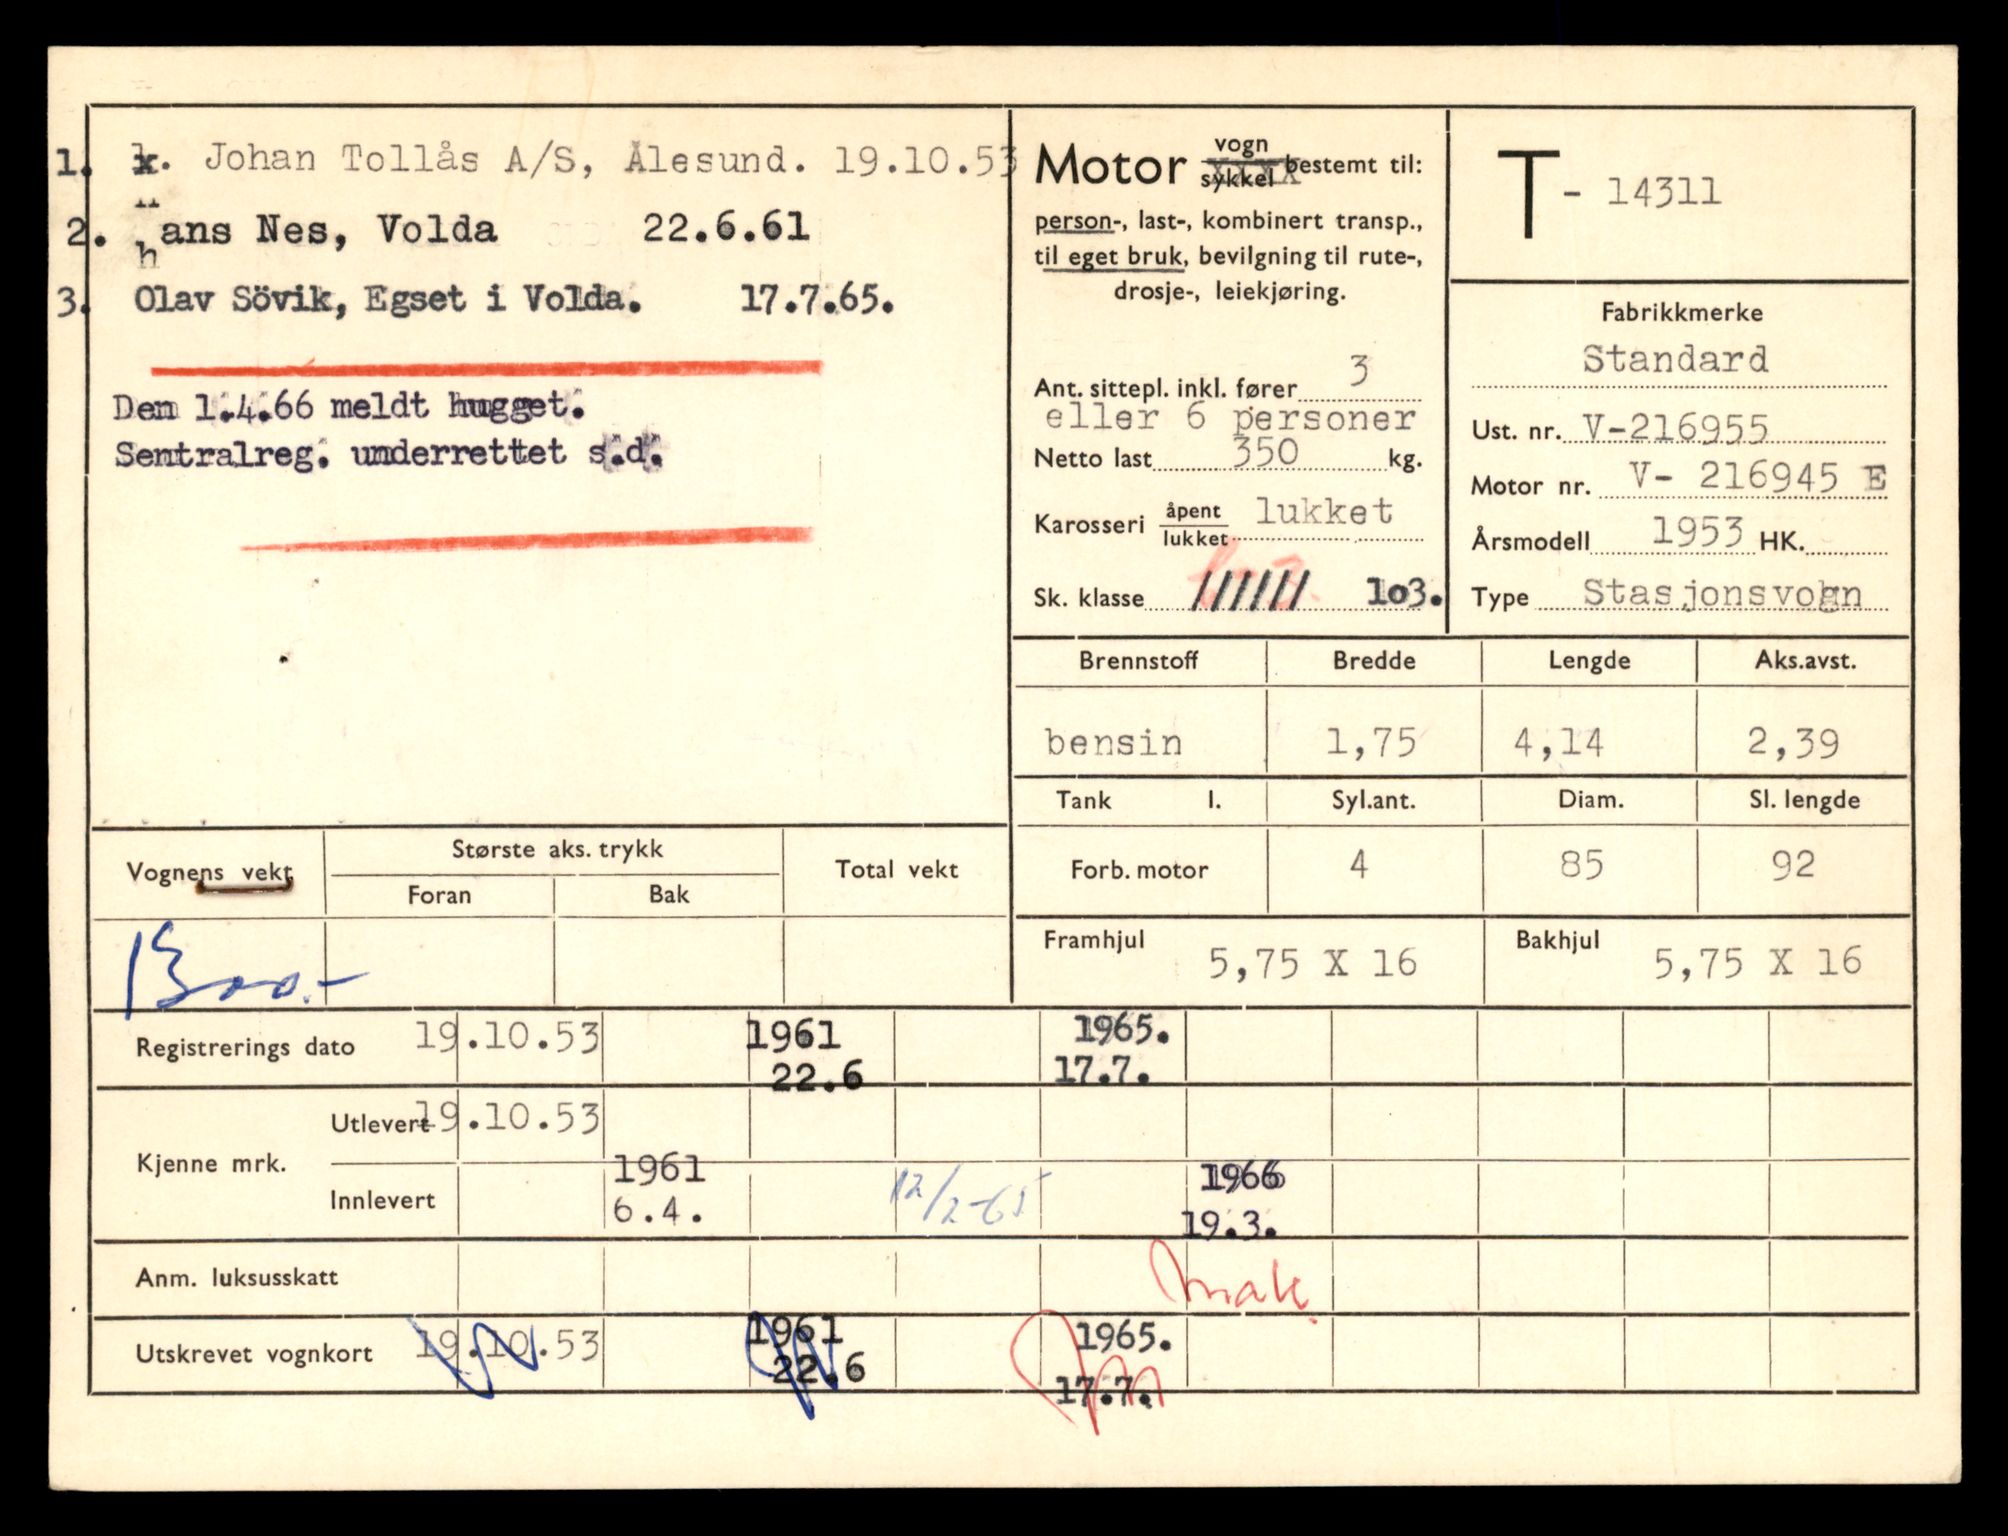 1. k. Johan Tollås A/S, Ålesund. 19.10.53
2. hans Nes, Volda 22.6.61
3. Olav Sövik, Egset i Volda. 17.7.65.
Den 1.4.66 meldt hugget.
Sentralreg. underrettet s.d.
Motor vogn
sykkel bestemt til:
person-, last-, kombinert transp.,
til eget bruk, bevilgning til rute-,
drosje-, leiekjøring.
Ant. sittepl. inkl. fører 3
eller 6 personer
Netto last 350 kg.
Karosseri åpent
lukket lukket
Sk. klasse 103.
T - 14311
Fabrikkmerke
Standard
Ust. nr. V-216955
Motor nr. V- 216945 E
Årsmodell 1953 HK.
Type Stasjonsvogn
Brennstoff Bredde Lengde Aks.avst.
bensin 1,75 4,14 2,39
Tank l. Syl.ant. Diam. Sl. lengde
Forb. motor 4 85 92
Framhjul 5,75 X 16 Bakhjul 5,75 X 16
Vognens vekt Største aks. trykk Total vekt
Foran Bak
1300.-
Registrerings dato 19.10.53 1961 1965.
22.6 17.7.
Kjenne mrk.
Utlevert 19.10.53
Innlevert 1961 12/2-65 1966
6.4. 19.3.
Anm. luksusskatt
Utskrevet vognkort 19.10.53 1961 1965.
22.6 17.7.